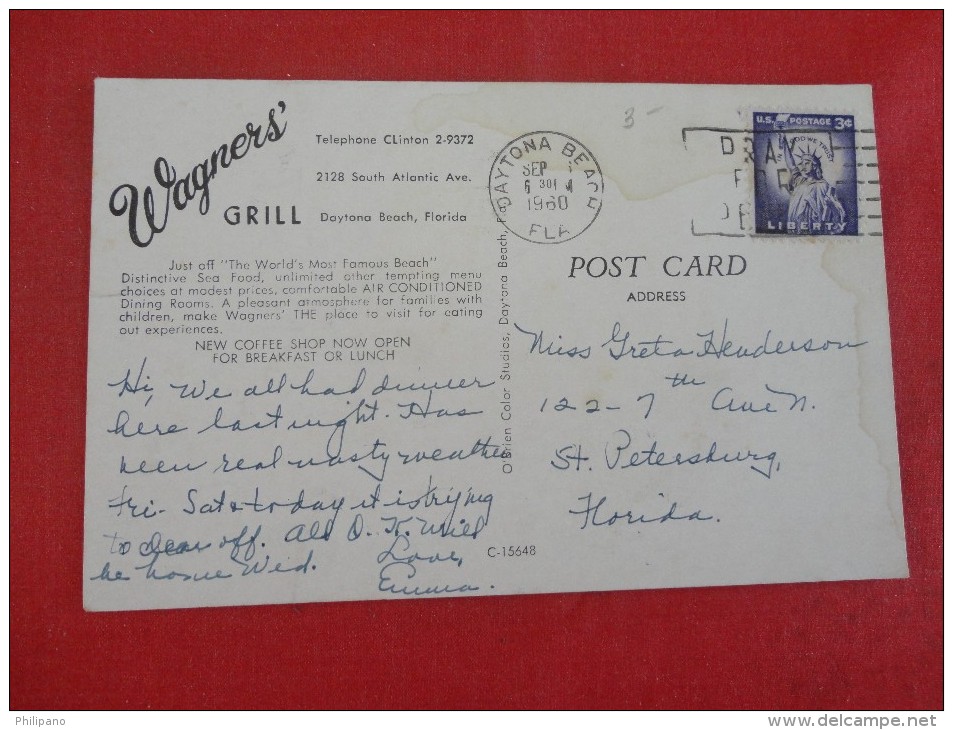 Wagners'
GRILL
Telephone CLinton 2-9372
2128 South Atlantic Ave.
Daytona Beach, Florida
Just off "The World's Most Famous Beach"
Distinctive Sea Food, unlimited other tempting menu
choices at modest prices, comfortable AIR CONDITIONED
Dining Rooms. A pleasant atmosphere for families with
children, make Wagners' THE place to visit for eating
out experiences.
NEW COFFEE SHOP NOW OPEN
FOR BREAKFAST OR LUNCH
Hi, We all had dinner
here last night. Has
been real nasty weather
Fri- Sat & today it is trying
to clear off. All O.K. Will
be home Wed.
Love,
Emma.
O'Brien Color Studios, Daytona Beach, Fla.
C-15648
3-
DAYTONA BEACH
SEP
6 30
1960
FLA
U.S. POSTAGE 3¢
IN GOD WE TRUST
LIBERTY
POST CARD
ADDRESS
Miss Greta Henderson
122-7th Ave N.
St. Petersburg,
Florida.
Philipano
www.delcampe.net